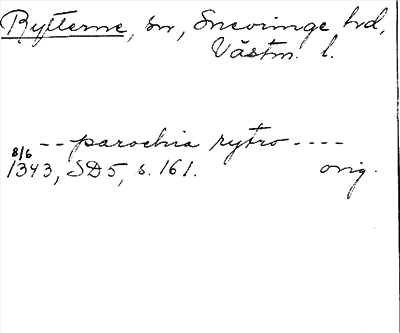 Rytterne, sn, Snevringe hd,
Västm. l.
-- parochia rytro ----
8/6
1343, SD5, s. 161. orig.